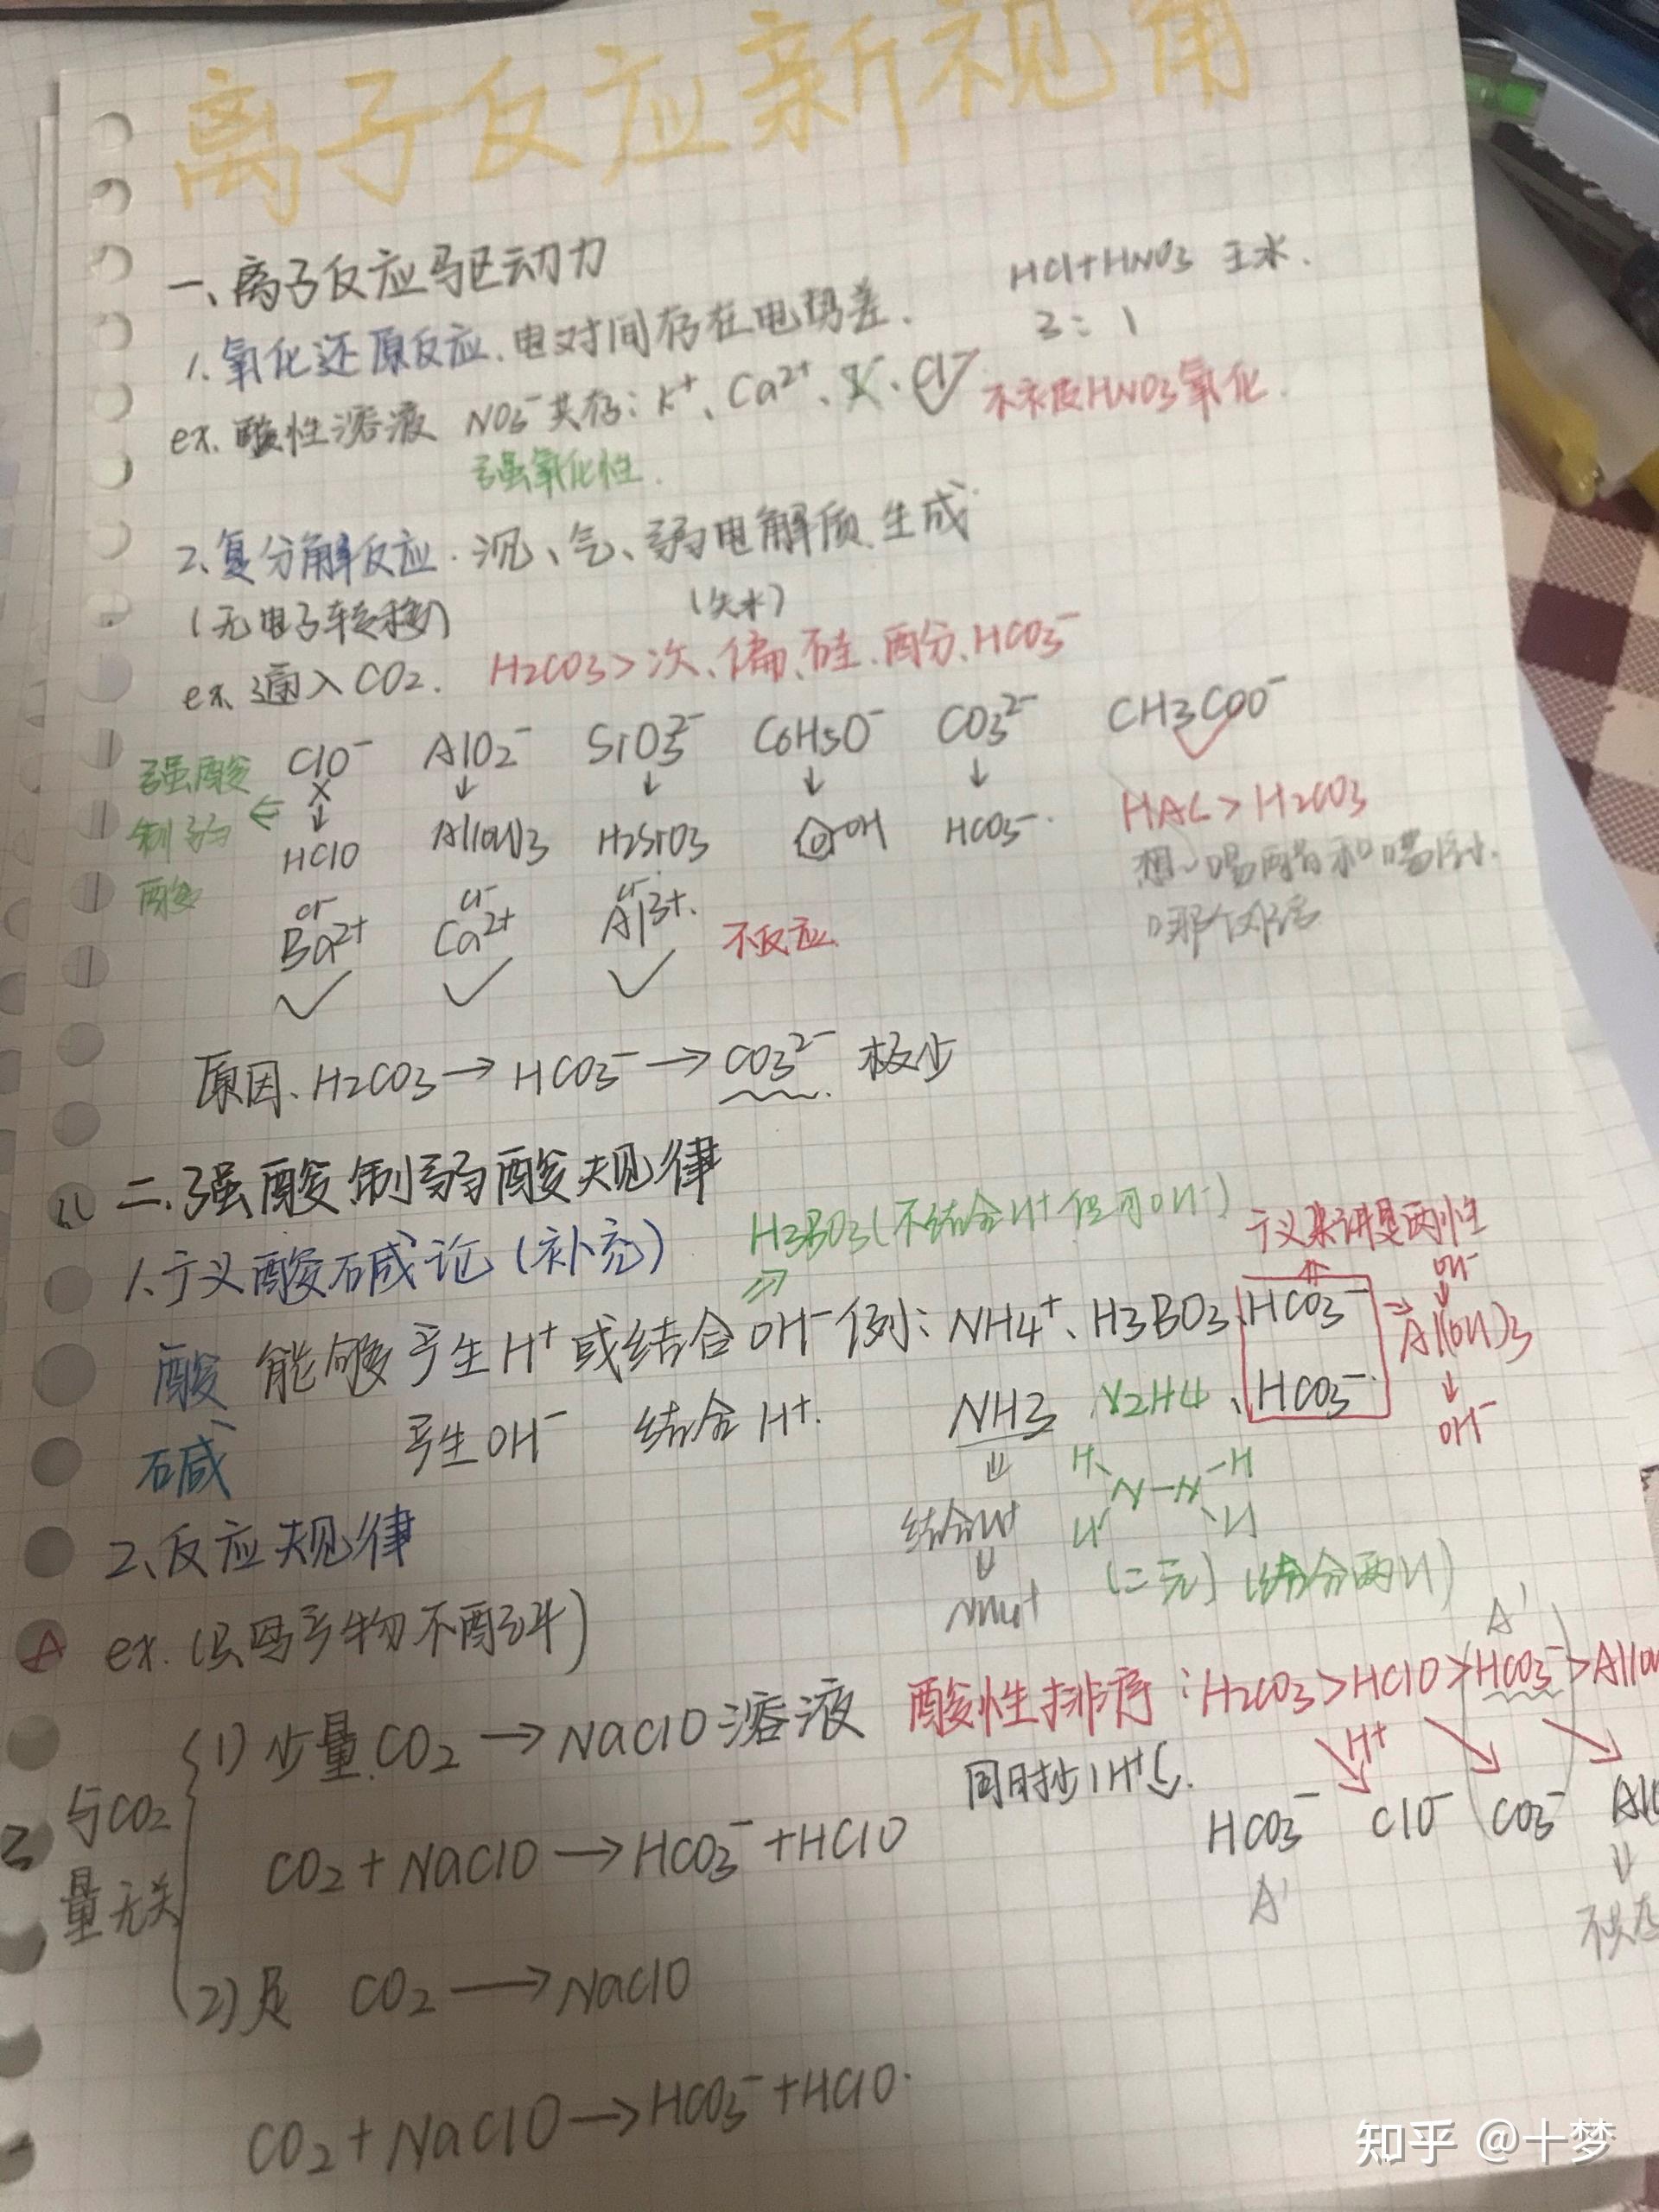 离子反应新视角
一、离子反应驱动力
HCl+HNO3 王水.
3:1
1.氧化还原反应.电对间存在电势差.
ex.酸性溶液 NO3⁻共存:K⁺、Ca²⁺、I⁻、Cl⁻ 不会被HNO3氧化.
强氧化性.
2.复分解反应.沉、气、弱电解质生成
(无电子转移)
ex.通入CO2. H2CO3>次、偏、硅、酚、HCO3⁻
ClO⁻ AlO2⁻ SiO3²⁻ C6H5O⁻ CO3²⁻ CH3COO⁻
强酸制弱酸
HClO Al(OH)3 H2SiO3 OH HCO3⁻.
HAc>H2CO3
Cl⁻ Cl⁻ Cl⁻
Ba²⁺ Ca²⁺ Al³⁺. 不反应.
原因、H2CO3→HCO3⁻→CO3²⁻ 极少
二.强酸制弱酸规律
H3BO3(不结合H⁺但可OH⁻)
广义来讲是两性
1.广义酸碱论(补充)
酸 能够产生H⁺或结合OH⁻例:NH4⁺、H3BO3、HCO3⁻
OH⁻
Al(OH)3
OH⁻
碱 产生OH⁻ 结合H⁺. NH3、N2H4、HCO3⁻.
结合H⁺
NH4⁺
H H
N-N
H H
(二元)(结合两H)
2、反应规律
ex.(只写产物不配平)
酸性排序:H2CO3>HClO>(HCO3⁻)>Al(OH
A'
同时少1H⁺
H⁺
HCO3⁻ ClO⁻ CO3⁻ AlO
A'
不共存
与CO2量无关
(1)少量.CO2→NaClO溶液
CO2+NaClO→HCO3⁻+HClO
(2)足 CO2→NaClO
CO2+NaClO→HCO3⁻+HClO.
知乎 @十梦